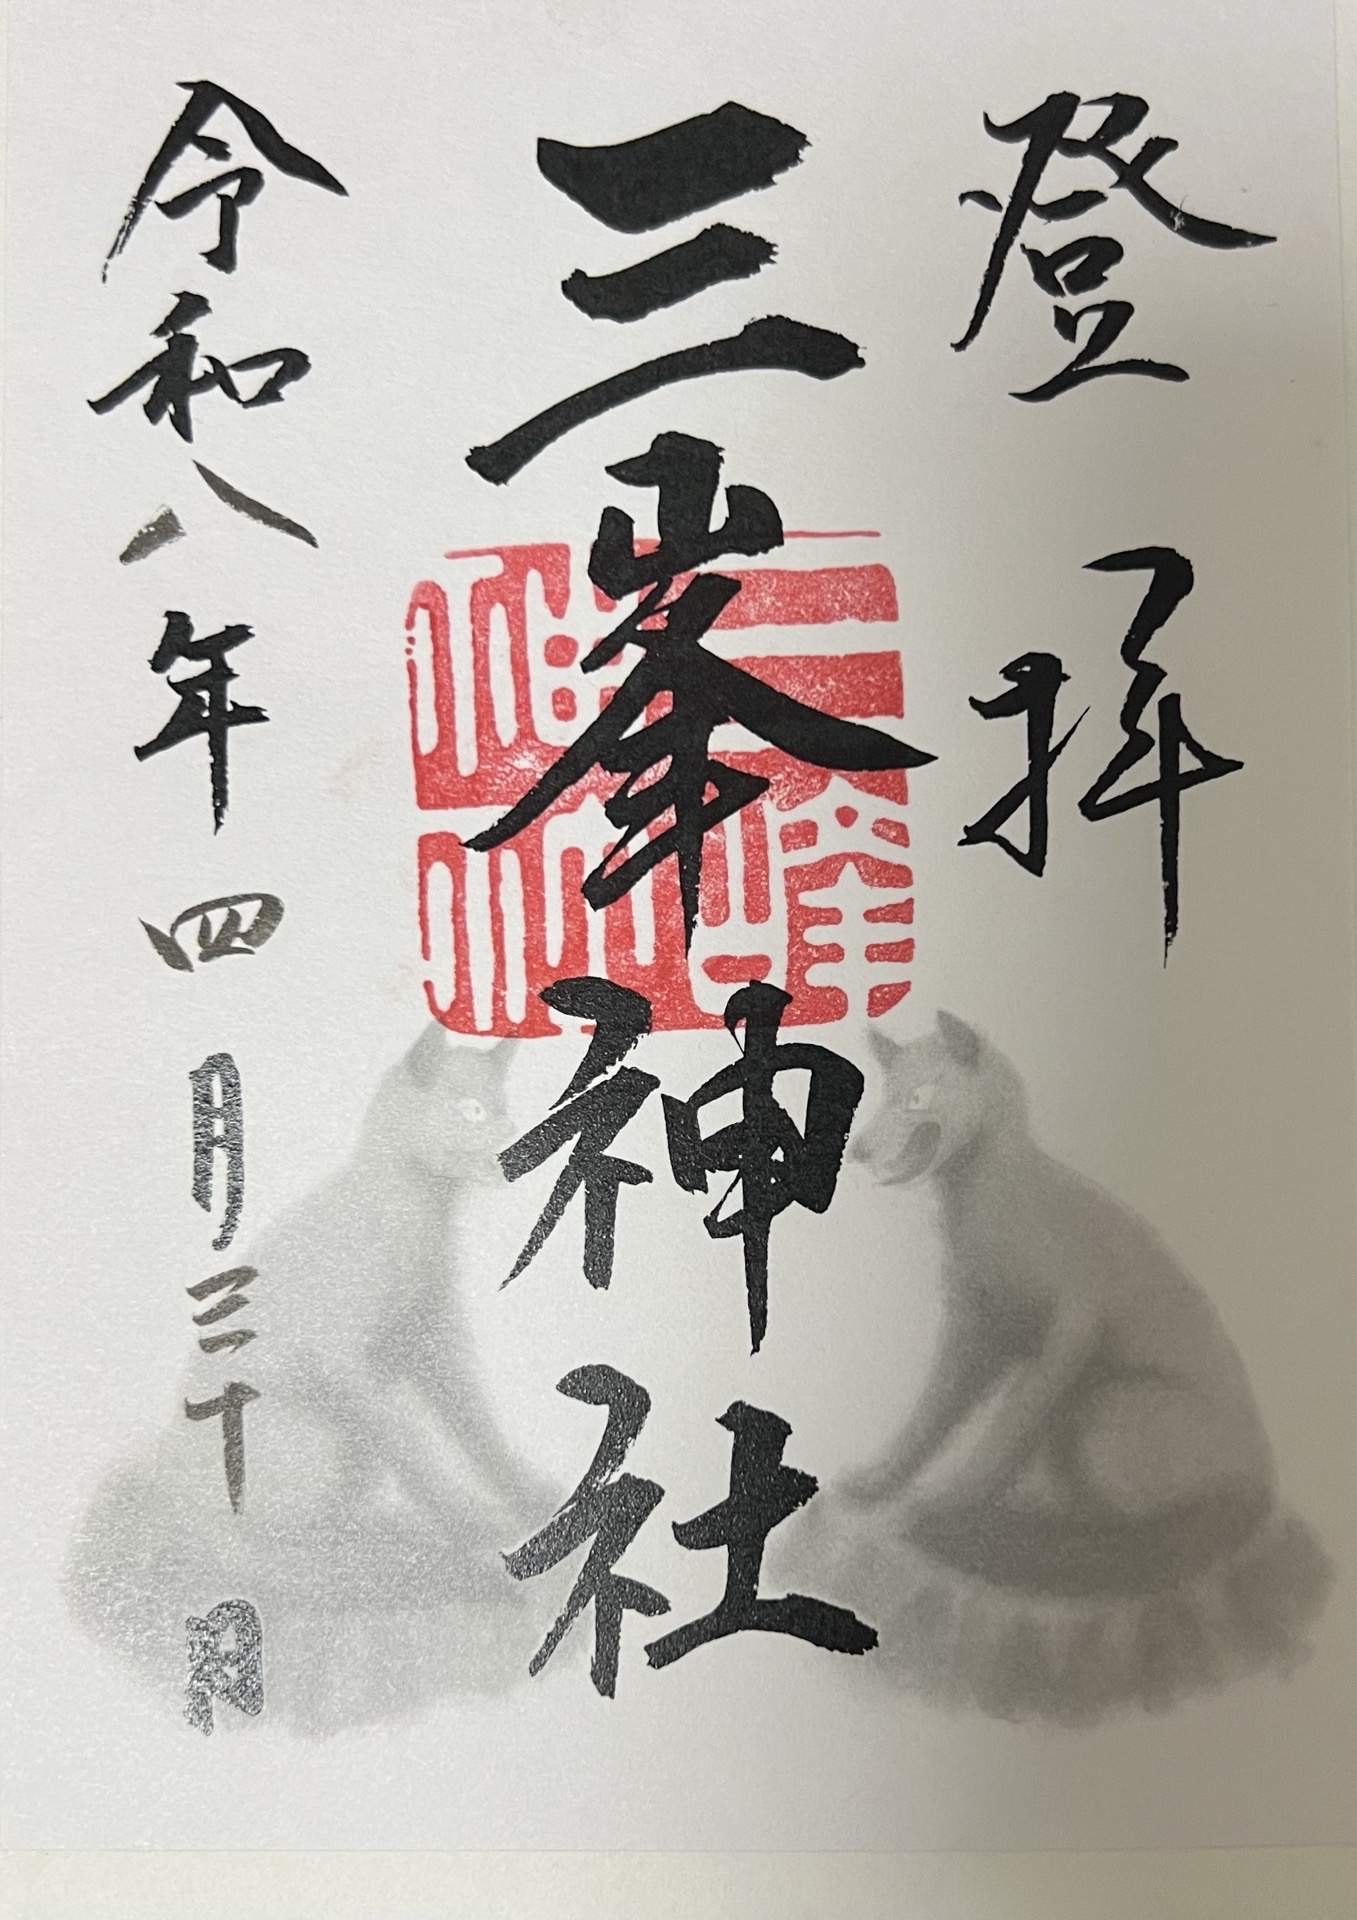 登拝
三峯神社
令和八年四月三十日